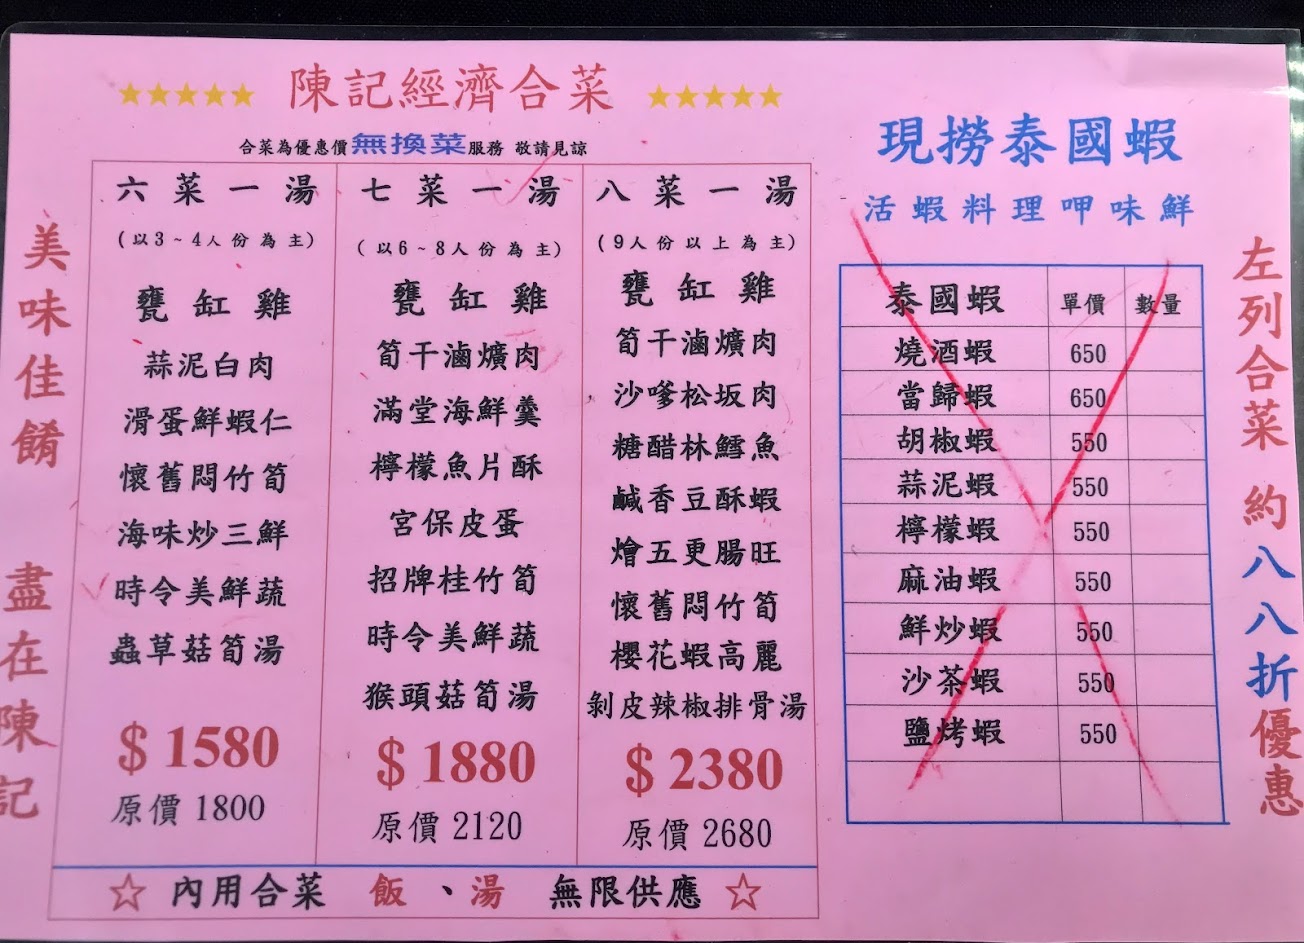 ★★★★★ 陳記經濟合菜 ★★★★★
合菜為優惠價無換菜服務 敬請見諒
六菜一湯
(以3~4人份為主)
甕缸雞
蒜泥白肉
滑蛋鮮蝦仁
懷舊悶竹筍
海味炒三鮮
時令美鮮蔬
蟲草菇筍湯
$1580
原價1800
七菜一湯
(以6~8人份為主)
甕缸雞
筍干滷爌肉
滿堂海鮮羹
檸檬魚片酥
宮保皮蛋
招牌桂竹筍
時令美鮮蔬
猴頭菇筍湯
$1880
原價2120
八菜一湯
(9人份以上為主)
甕缸雞
筍干滷爌肉
沙嗲松坂肉
糖醋林鱈魚
鹹香豆酥蝦
燴五更腸旺
懷舊悶竹筍
櫻花蝦高麗
剝皮辣椒排骨湯
$2380
原價2680
☆ 內用合菜 飯、湯 無限供應 ☆
美味佳餚 盡在陳記
現撈泰國蝦
活蝦料理呷味鮮
泰國蝦 單價 數量
燒酒蝦 650
當歸蝦 650
胡椒蝦 550
蒜泥蝦 550
檸檬蝦 550
麻油蝦 550
鮮炒蝦 550
沙茶蝦 550
鹽烤蝦 550
左列合菜 約八八折優惠